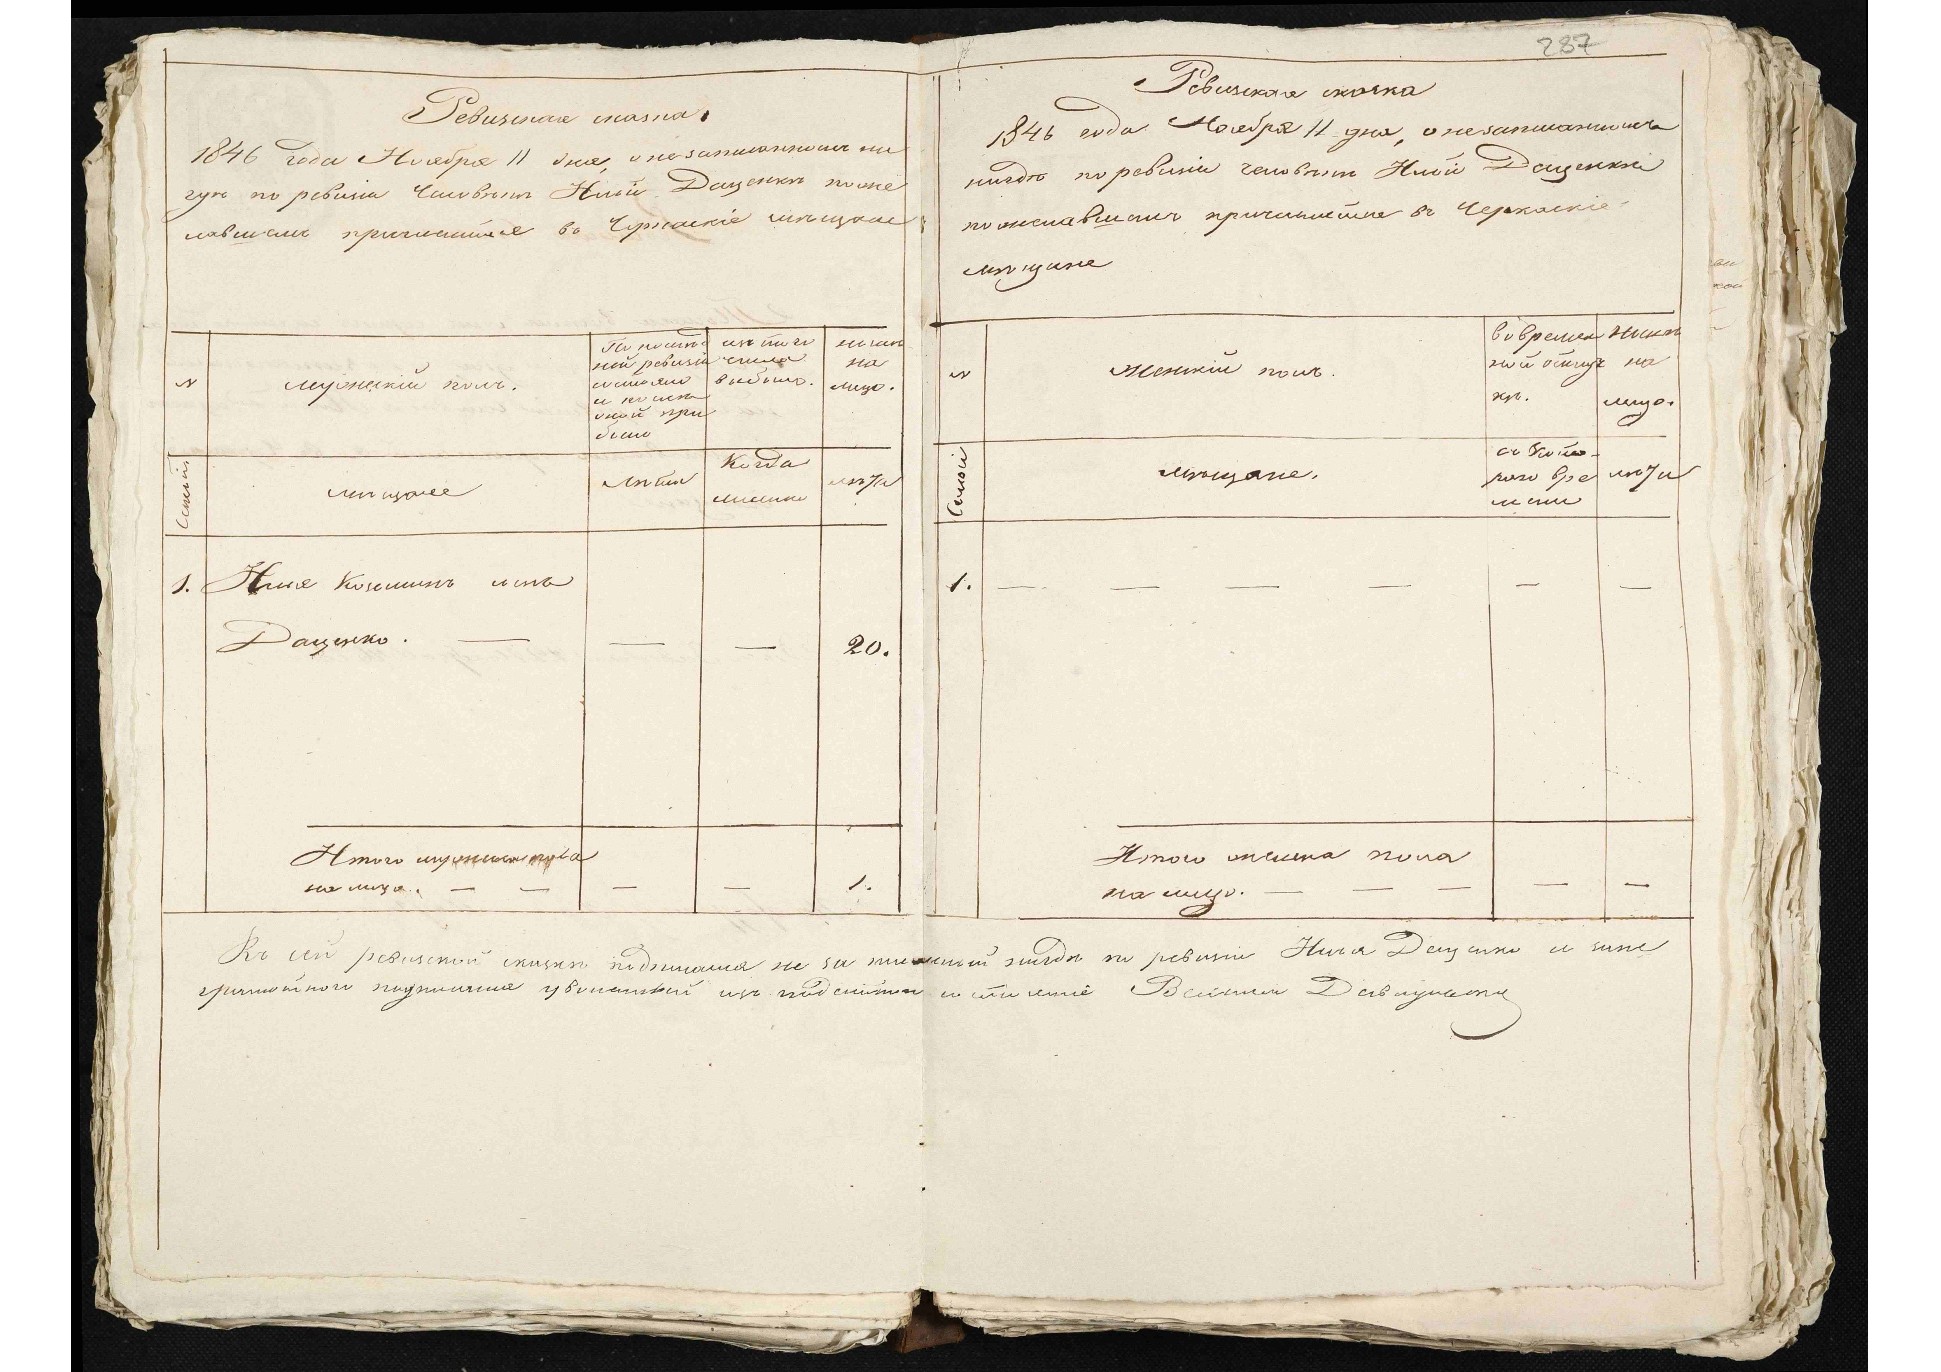 287
Ревизская сказка.
1846 года Ноября 11 дня, о незаписанном ни
гдѣ по ревизіи человѣкѣ Ильѣ Даценкѣ поже
лавшемъ причислится во Черкаскіе мѣщане
№
мужескій полъ.
По послѣд
ней ревизіи
состояло
и послѣ
оной при
было
изъ того
числа
выбыло.
нынѣ
на
лицо.
Семьи
мѣщане
лѣта
Когда
именно
лѣта
1. Илья Козминъ сынъ
Даценко. — — — 20.
Итого мужеска пола
на лицо. — — — — 1.
Ревизская сказка
1846 года Ноября 11 дня, о незаписанномъ
нигдѣ по ревизіи человѣкѣ Ильѣ Даценкѣ
пожелавшемъ причислится въ Черкаскіе
мѣщане
№
Женскій полъ.
во времен
ной отлуч
кѣ.
Нынѣ
на
лицо.
Семьи
мѣщане.
съ кото-
раго вре
мени
лѣта
1. — — — — — —
Итого женска пола
на лицо. — — — — —
Къ сей ревизской сказкѣ подписался не записанный нигдѣ по ревизіи Илья Даценко а за не
грамотного подписался уволенный изъ состояніе